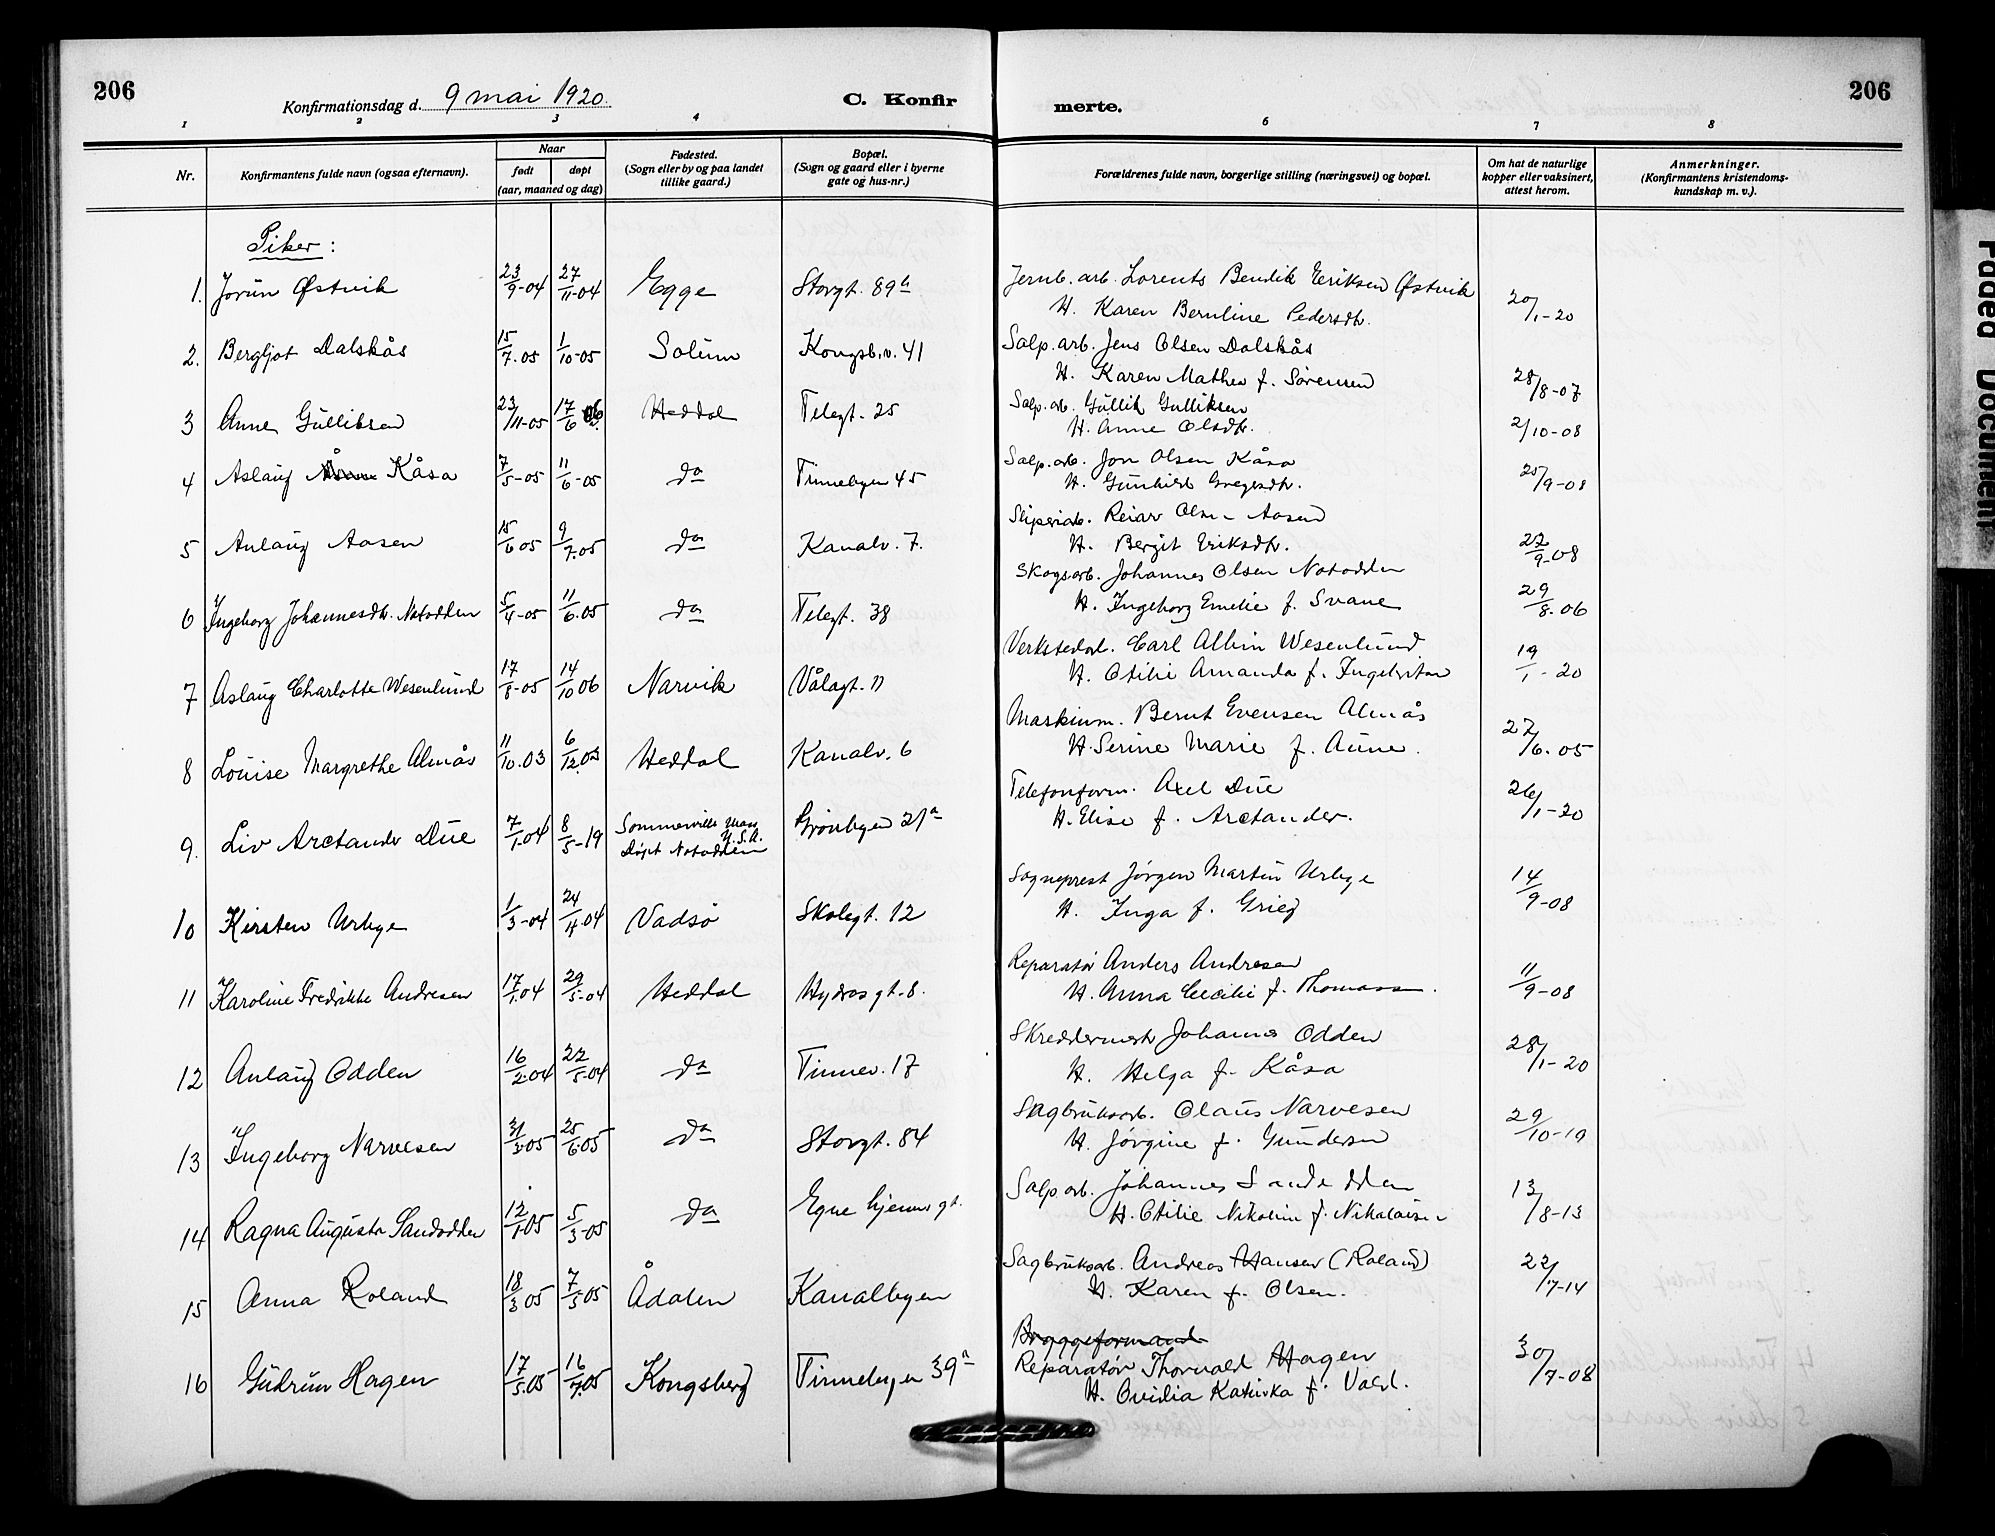 206
Konfirmationsdag d. 9 mai 1920.
C. Konfir
merte.
206
1 2 3 4 6 7 8
Nr.
Konfirmantens fulde navn (ogsaa efternavn).
Naar
født døpt
(aar, maaned og dag)
Fødested.
(Sogn eller by og paa landet
tillike gaard.)
Bopæl.
(Sogn og gaard eller i byerne
gate og hus-nr.)
Forældrenes fulde navn, borgerlige stilling (næringsvei) og bopæl.
Om hat de naturlige
kopper eller vaksinert,
attest herom.
Anmerkninger.
(Konfirmantens kristendoms-
kundskap m. v.).
Piker:
1. Jorun Østvik 23/9-04 27/11-04 Egge Storgt. 89a Jernb. arb. Lorents Bendik Eriksen Østvik
H. Karen Bernline Pedersdtr. 20/1-20
2. Bergljot Dalskås 15/7.05 1/10-05 Solum Kongsb.v. 41 Salp. arb. Jens Olsen Dalskås
H. Karen Mathea f. Sørensen 28/8-07
3 Anne Gulliksen 23/11-05 17/6 06 Heddal Telegt. 25 Salp. arb. Gullik Gulliksen
H. Anne Olsdtr. 2/10-08
4 Aslaug Kåsa 7/5-05 11/6-05 da Tinnebyen 45 Salp. arb. Jon Olsen Kåsa
H. Gunhild Gregersdtr. 25/9-08
5 Anlaug Aasen 15/6 05 9/7.05 da Kanalv. 7. Sliperiarb. Reiar Olsen Aasen
H. Bergit Eriksdtr. 22/9-08
6 Ingeborg Johannesdtr. Notodden 5/4-05 11/6.05 da Telegt. 38 Skogsarb. Johannes Olsen Notodden
H. Ingeborg Emelie f. Svane 29/8.06
7 Aslaug Charlotte Wesenlund 17/8-05 14/10 06 Narvik Vålagt. 11 Verkstedarb. Carl Albin Wesenlund
H. Otilie Amanda f. Ingebritsen 19/1-20
8 Louise Margrethe Almås 11/10.03 6/12.03 Heddal Kanalv. 6 Maskinm. Bernt Evensen Almås
H. Serine Marie f. Aune. 27/6.05
9. Liv Arctander Due 7/1.04 8/5-19 Sommerville Mass
U.S.A.
Døpt Notodden Grønbyen 21a Telefonform. Axel Due
H. Elise f. Arctander. 26/1-20
10 Kirsten Urbye 1/3-04 24/4.04 Vadsø Skolegt. 12 Sogneprest Jørgen Martin Urbye
H. Inga f. Grieg 14/9-08
11 Karoline Fredrikke Andresen 17/1.04 29/5-04 Heddal Hydros gt. 8. Reparatør Anders Andresen
H. Anna Cecilie f. Thomassen. 11/9-08
12 Anlaug Odden 16/2-04 22/5-04 da Tinnev. 17 Skreddermest. Johannes Odden
H. Helga f. Kåsa 28/1-20
13 Ingeborg Narvesen 31/3.05 25/6.05 da Storgt. 84 Sagbruksarb. Olaus Narvesen
H. Jørgine f. Gundersen 29/10-19
14 Ragna Augusta Sandodden 12/1.05 5/3-05 da Egne hjems gt. Salp. arb. Johannes Sandodden
H. Otilie Nikoline f. Nikolaisen 13/8-13
15 Anna Roland 18/3 05 7/5 05 Ådalen Kanalbyen Sagbruksarb. Andreas Hansen (Roland)
H. Karen f. Olsen. 22/7-14
16 Gudrun Hagen 17/5.05 16/7.05 Kongsberg Tinnebyen 39a Bryggeformand
Reparatør Thorvald Hagen
H. Ovidia Katinka f. Vold. 30/7-08